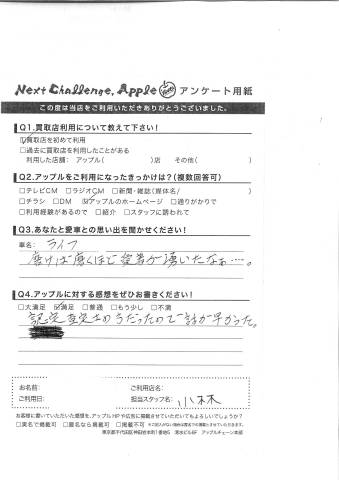 Next Challenge, Apple アンケート用紙
この度は当店をご利用いただきありがとうございました。
Q1.買取店利用について教えて下さい!
☑買取店を初めて利用
□過去に買取店を利用したことがある
利用した店舗: アップル( )店 その他( )
Q2.アップルをご利用になったきっかけは?(複数回答可)
□テレビCM □ラジオCM □新聞・雑誌(媒体名/ )
□チラシ □DM ☑アップルのホームページ □通りがかりで
□利用経験があるので □紹介 □スタッフに誘われて
Q3.あなたと愛車との思い出を聞かせください!
車名: ライフ
磨けば磨くほど愛着が湧いたなぁ…。
Q4.アップルに対する感想をぜひお書きください!
□大満足 ☑満足 □普通 □もう少し □不満
認定査定士の方だったので話が早かった。
お名前: ご利用店名:
ご利用日: 担当スタッフ名: 小林
お客様に書いていただいた感想を、アップルHPや広告に掲載させていただいてもよろしいでしょうか?
□実名で掲載可 □匿名なら掲載可 □掲載不可 ※ご記入がない場合は匿名での掲載とさせていただきます。
東京都千代田区神田岩本町1番地5 清水ビル6F アップルチェーン本部